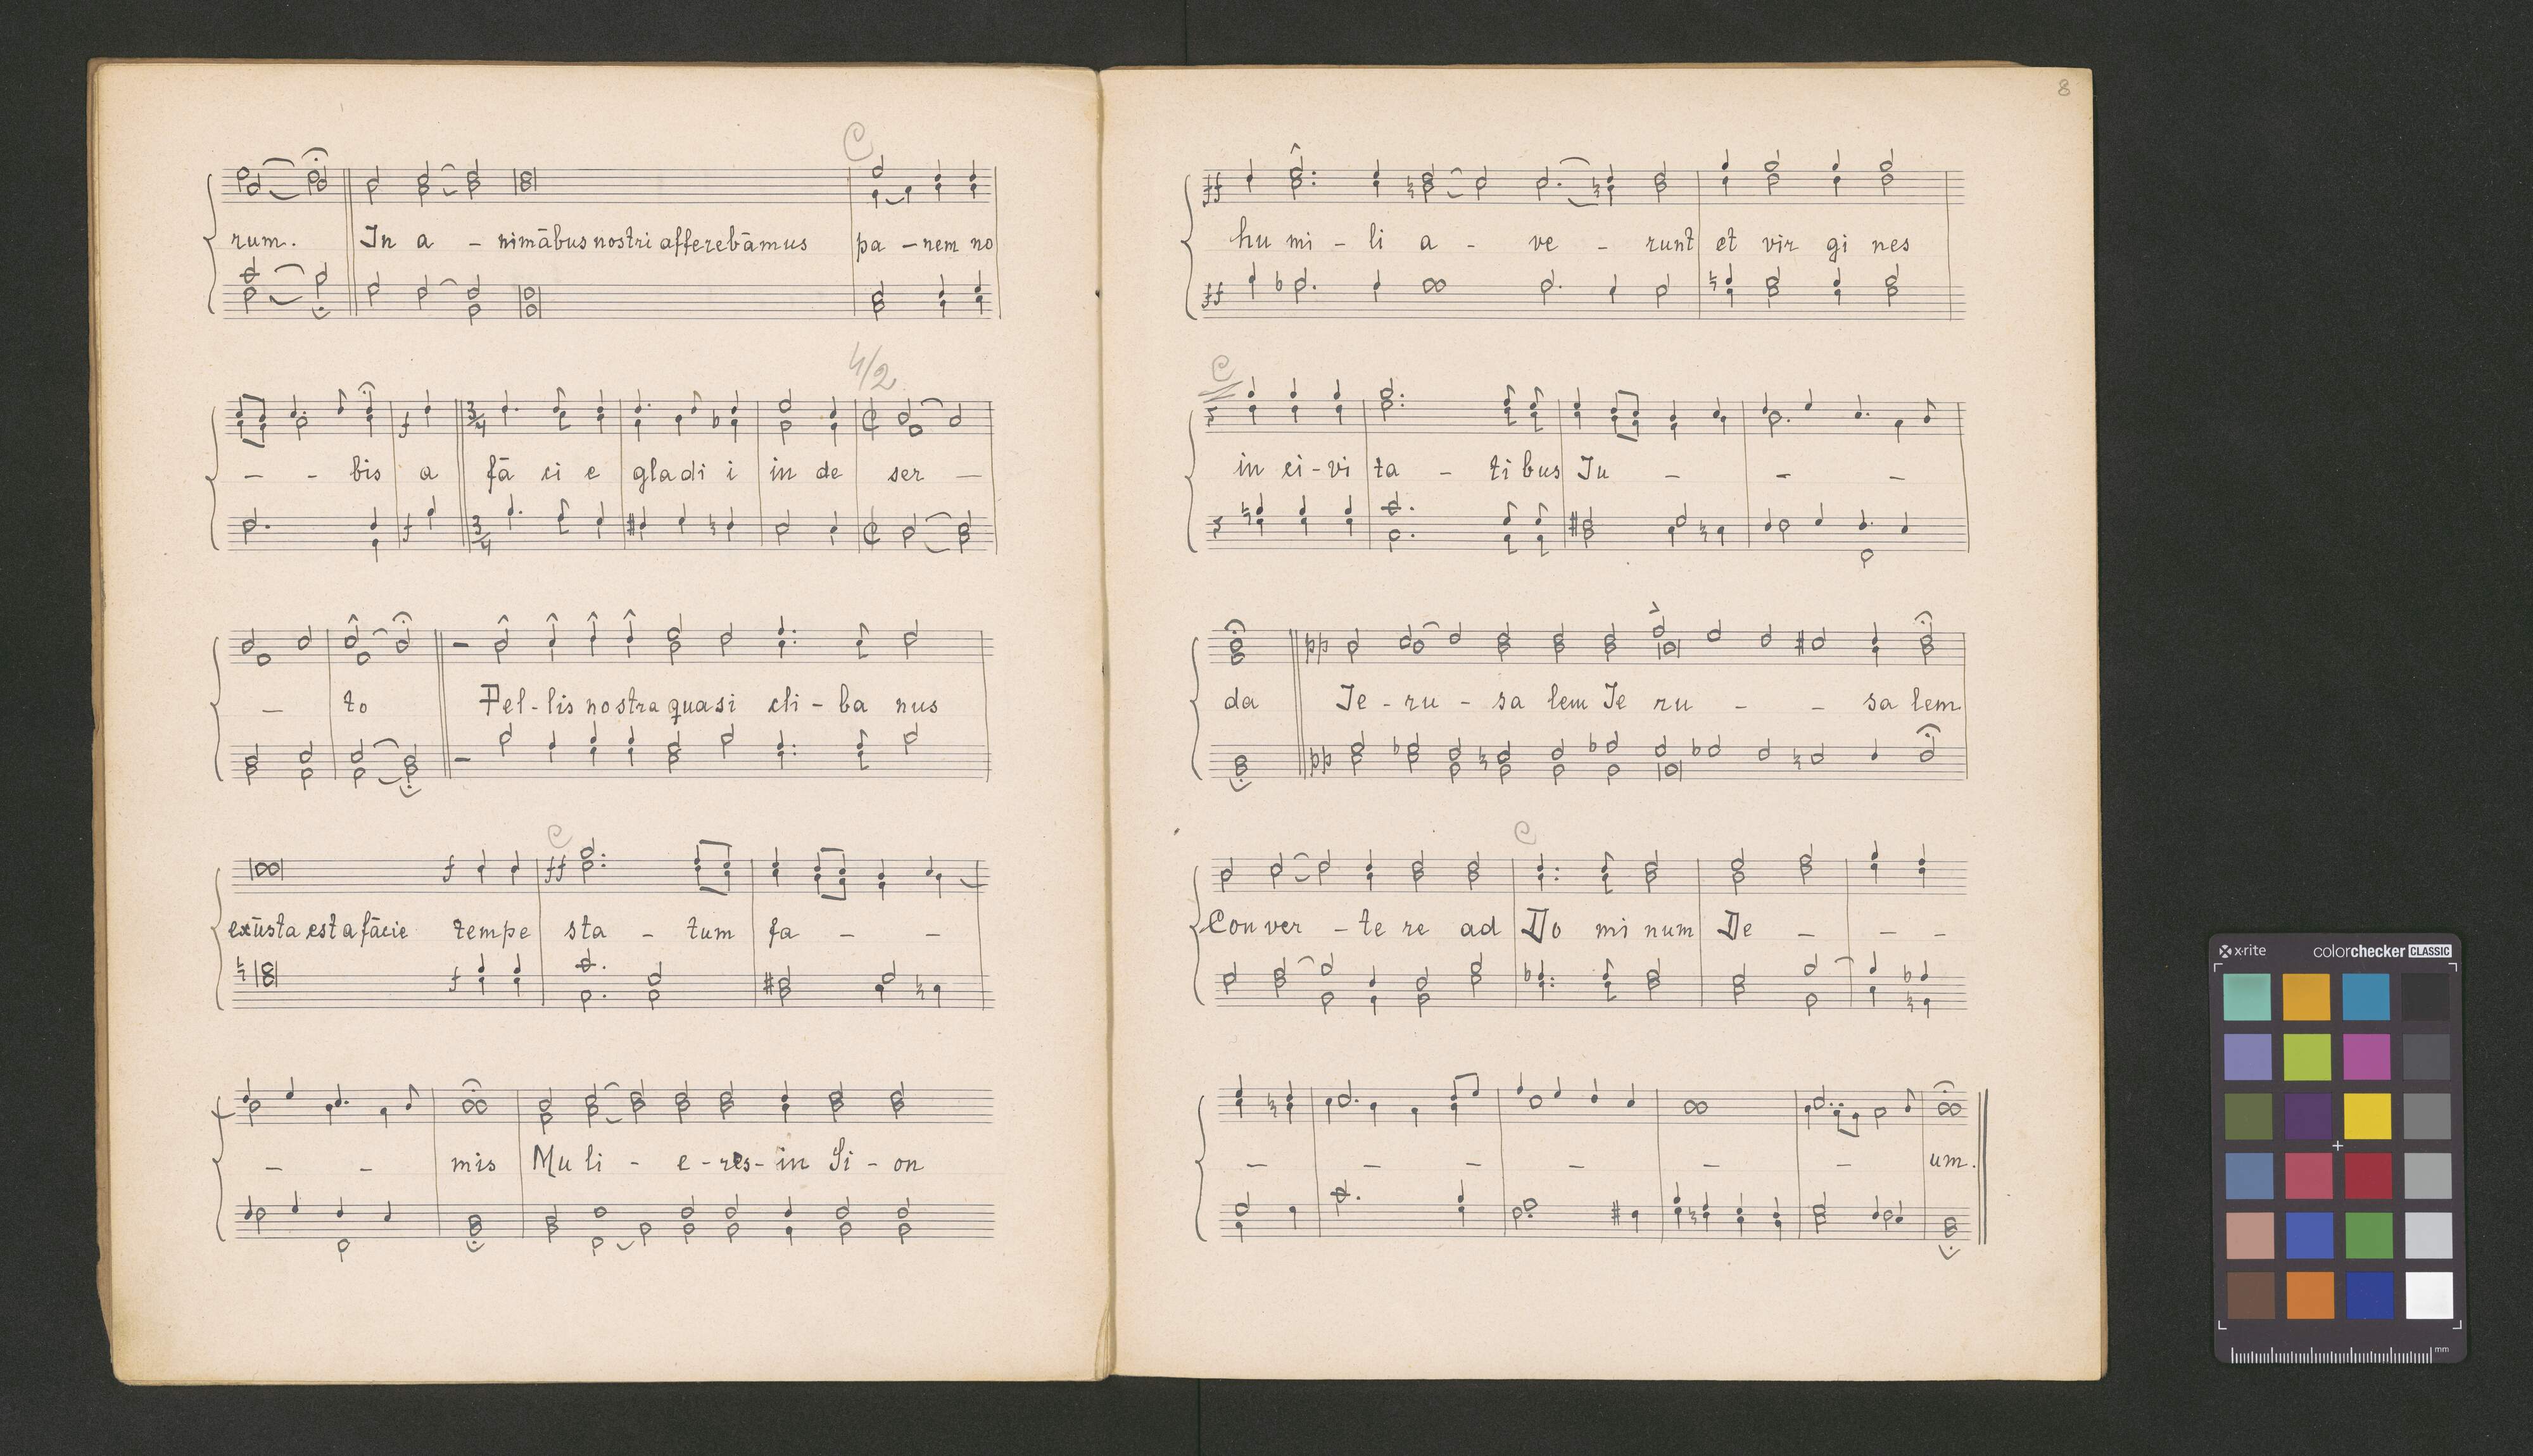 C
rum. In a - nimābus nostri afferebāmus pa - nem no
4/2
f 3/4
- - bis a fā ci e gladi i in de ser -
f 3/4
- to Pel - lis nostra quasi cli - ba nus
C
f ff
exūsta est a fācie tempe sta - tum fa - -
f
- - mis Mu li - e - res - in Si - on
8
ff
hu mi - li a - ve - runt et vir gi nes
ff
C
in ci - vi ta - ti bus Ju - - -
da Je - ru - sa lem Je ru - - sa lem
C
Con ver - te re ad Do mi num De - - -
- - - - - - um.
x-rite colorchecker CLASSIC
mm